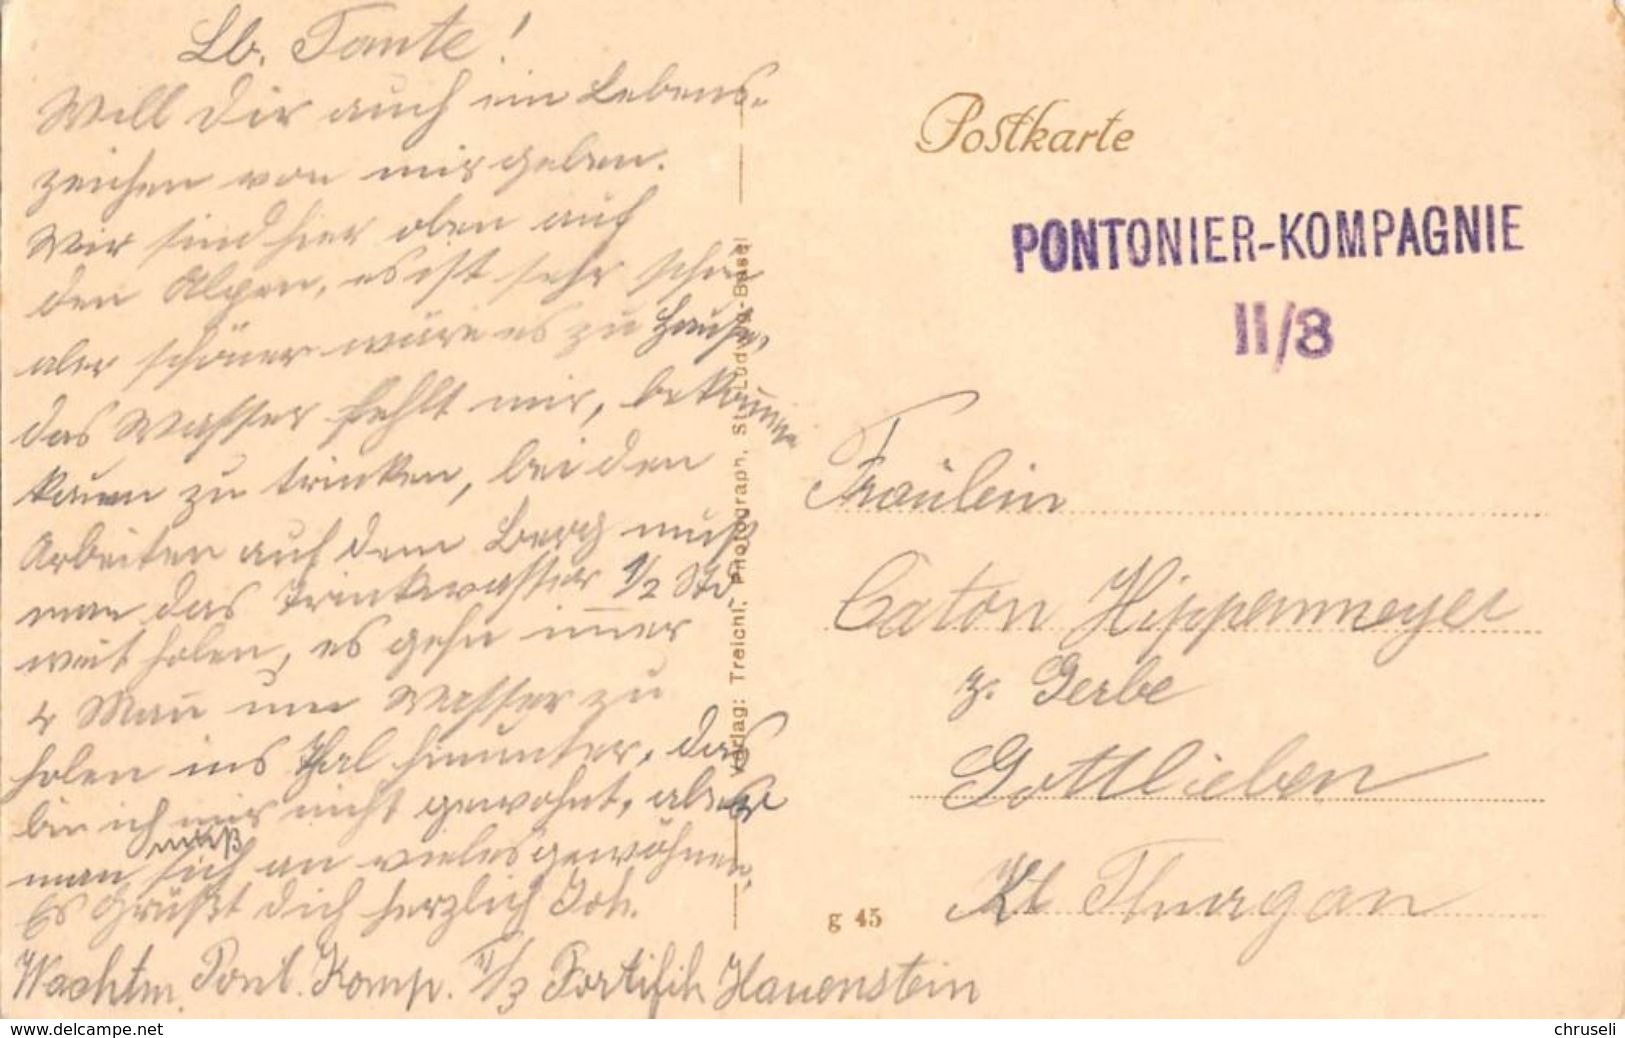 Lb. Tante!
Will Dir auch ein Lebens-
zeichen von mir geben.
Wir sind hier oben auf
den Alpen, es ist sehr schön
aber schöner wäre es zu Hause,
das Wasser fehlt mir, bekomme
kaum zu trinken, bei den
Arbeiten auf dem Berg muß
man das Trinkwasser 1/2 Std.
weit holen, es gehn immer
4 Mann um Wasser zu
holen ins Thal hinunter, das
bin ich mir nicht gewohnt, aber
man muß sich an vieles gewöhnen.
Es Grüßt dich herzlich Joh.
Wachtm. Pont. Komp. II/3 Fortifik Hauenstein
Verlag: Treichl, Photograph, St. Ludwig-Basel
Postkarte
PONTONIER-KOMPAGNIE
II/3
Fräulein
Caton Hippenmeyer
z. Gerbe
Gottlieben
Kt Thurgau
g 45
www.delcampe.net
chruseli